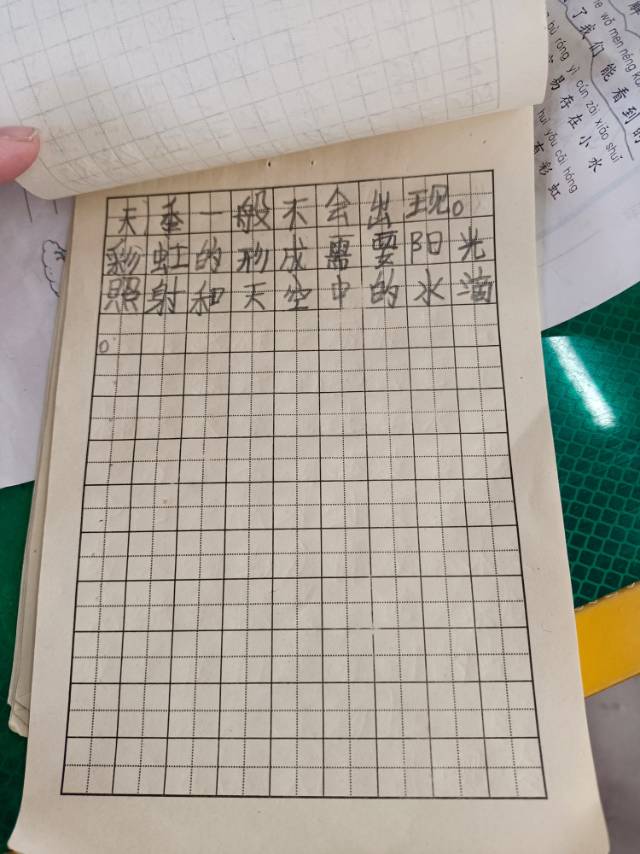 一般不会出现。
彩虹的形成需要阳光
照射和天空中的水滴
。
wǒ men néng
了我们能看到的
róng yì cún zài xiǎo shuǐ
易存在小水
yǒu cǎi hóng
有彩虹